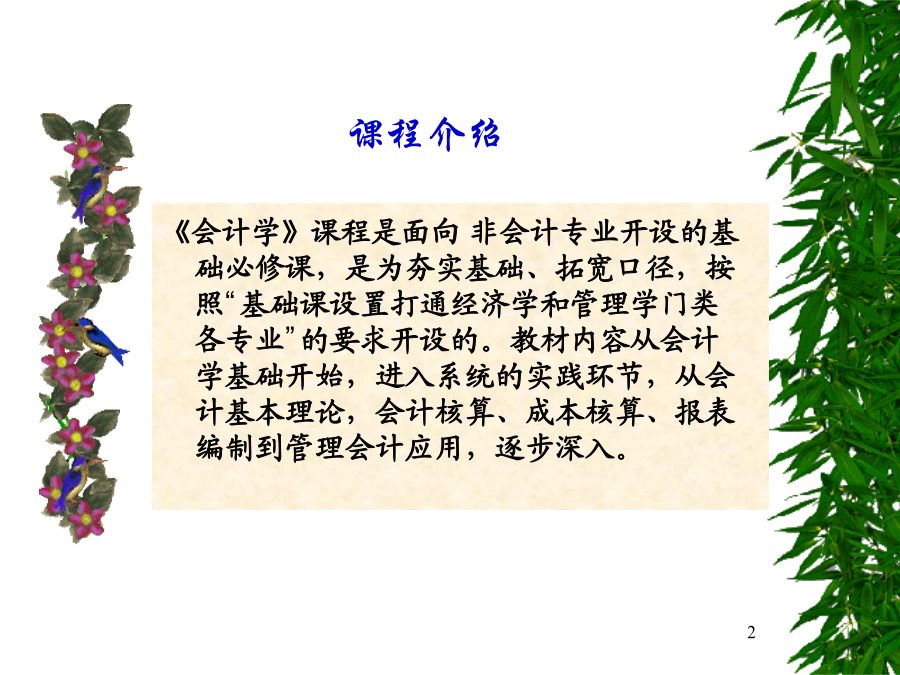 课程介绍
《会计学》课程是面向 非会计专业开设的基
础必修课，是为夯实基础、拓宽口径，按
照“基础课设置打通经济学和管理学门类
各专业”的要求开设的。教材内容从会计
学基础开始，进入系统的实践环节，从会
计基本理论，会计核算、成本核算、报表
编制到管理会计应用，逐步深入。
2